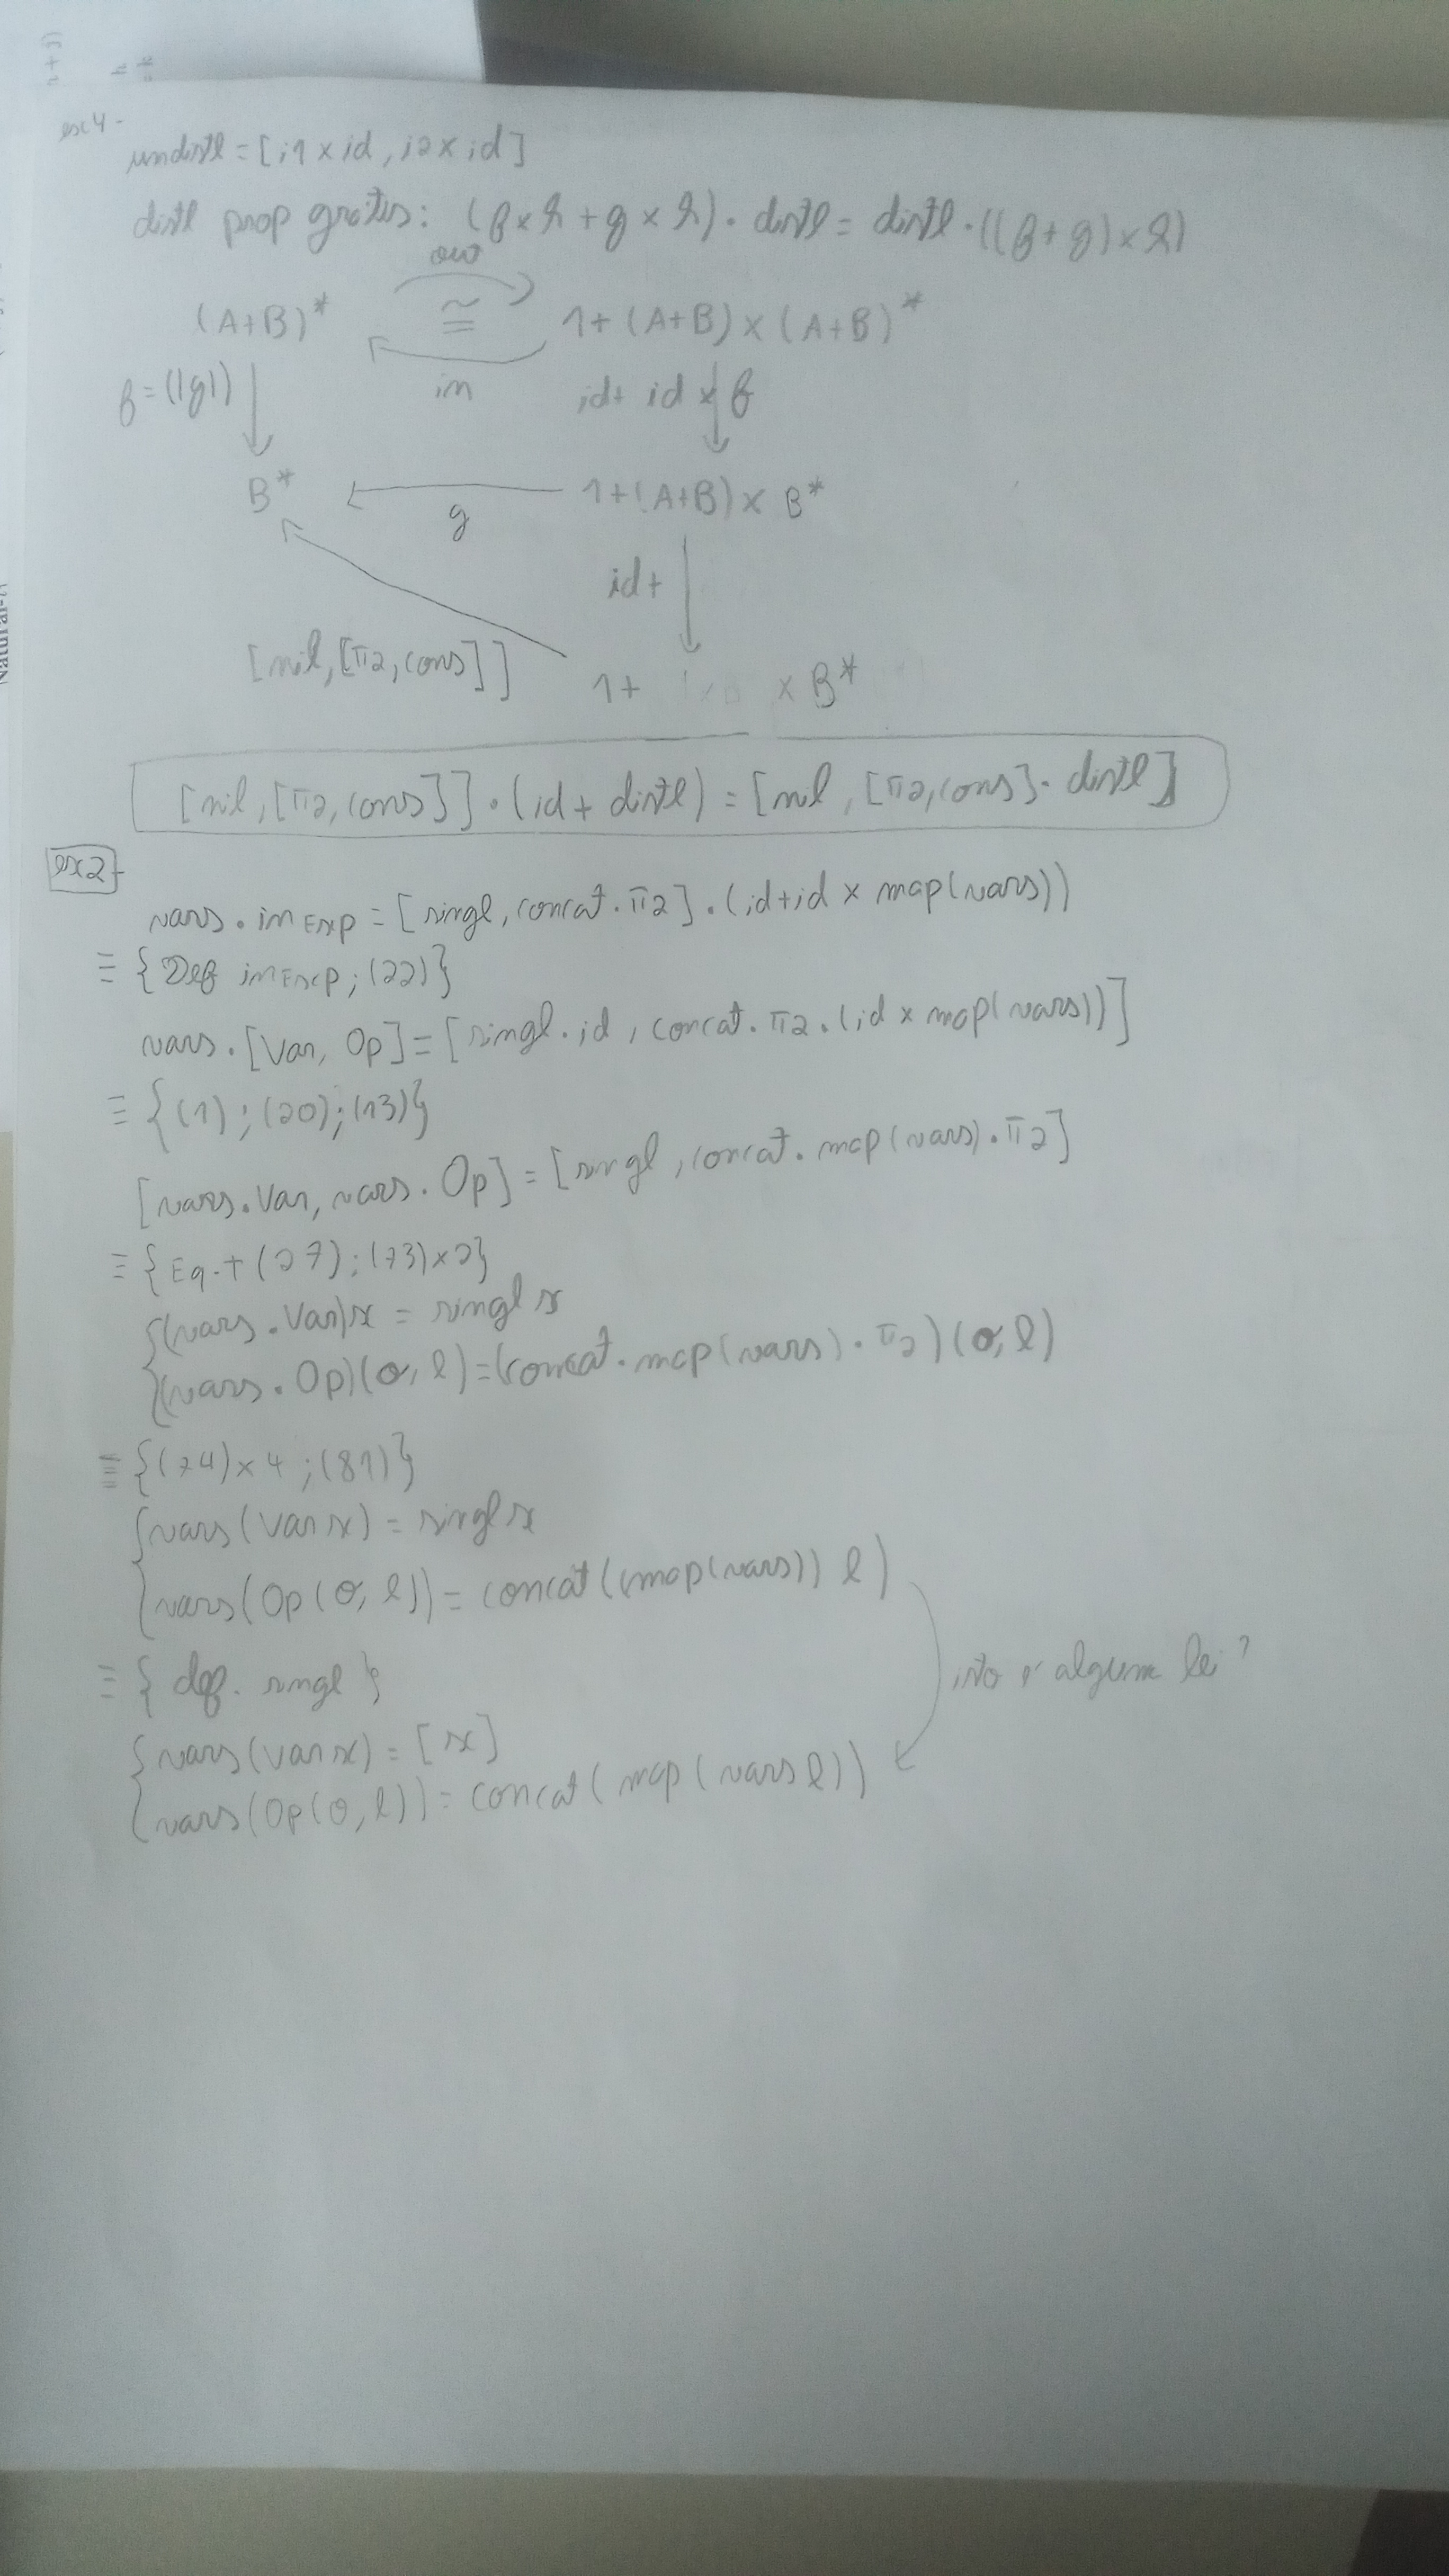 ex4-
undistl = [i1 × id, i2 × id]
distl prop gratis: (f × h + g × h) · distl = distl · ((f + g) × h)
out
(A+B)* ≅ 1 + (A+B) × (A+B)*
in
f = (|g|) id + id × f
B* 1 + (A+B) × B*
g
id +
[nil, [π2, cons]] 1 + × B*
[nil, [π2, cons]] · (id + distl) = [nil, [π2, cons] · distl]
ex2-
vars · inExp = [singl, concat · π2] · (id + id × map(vars))
≡ {Def inExp; (22)}
vars · [Var, Op] = [singl · id, concat · π2 · (id × map(vars))]
≡ {(1); (20); (13)}
[vars · Var, vars · Op] = [singl, concat · map(vars) · π2]
≡ {Eq-+ (27); (73)×2}
{(vars · Var) x = singl x
{(vars · Op)(o, l) = (concat · map(vars) · π2)(o, l)
≡ {(74)×4; (81)}
{vars(Var x) = singl x
{vars(Op(o, l)) = concat((map(vars)) l)
isto é alguma lei?
≡ {def. singl}
{vars(Var x) = [x]
{vars(Op(o, l)) = concat(map(vars l))